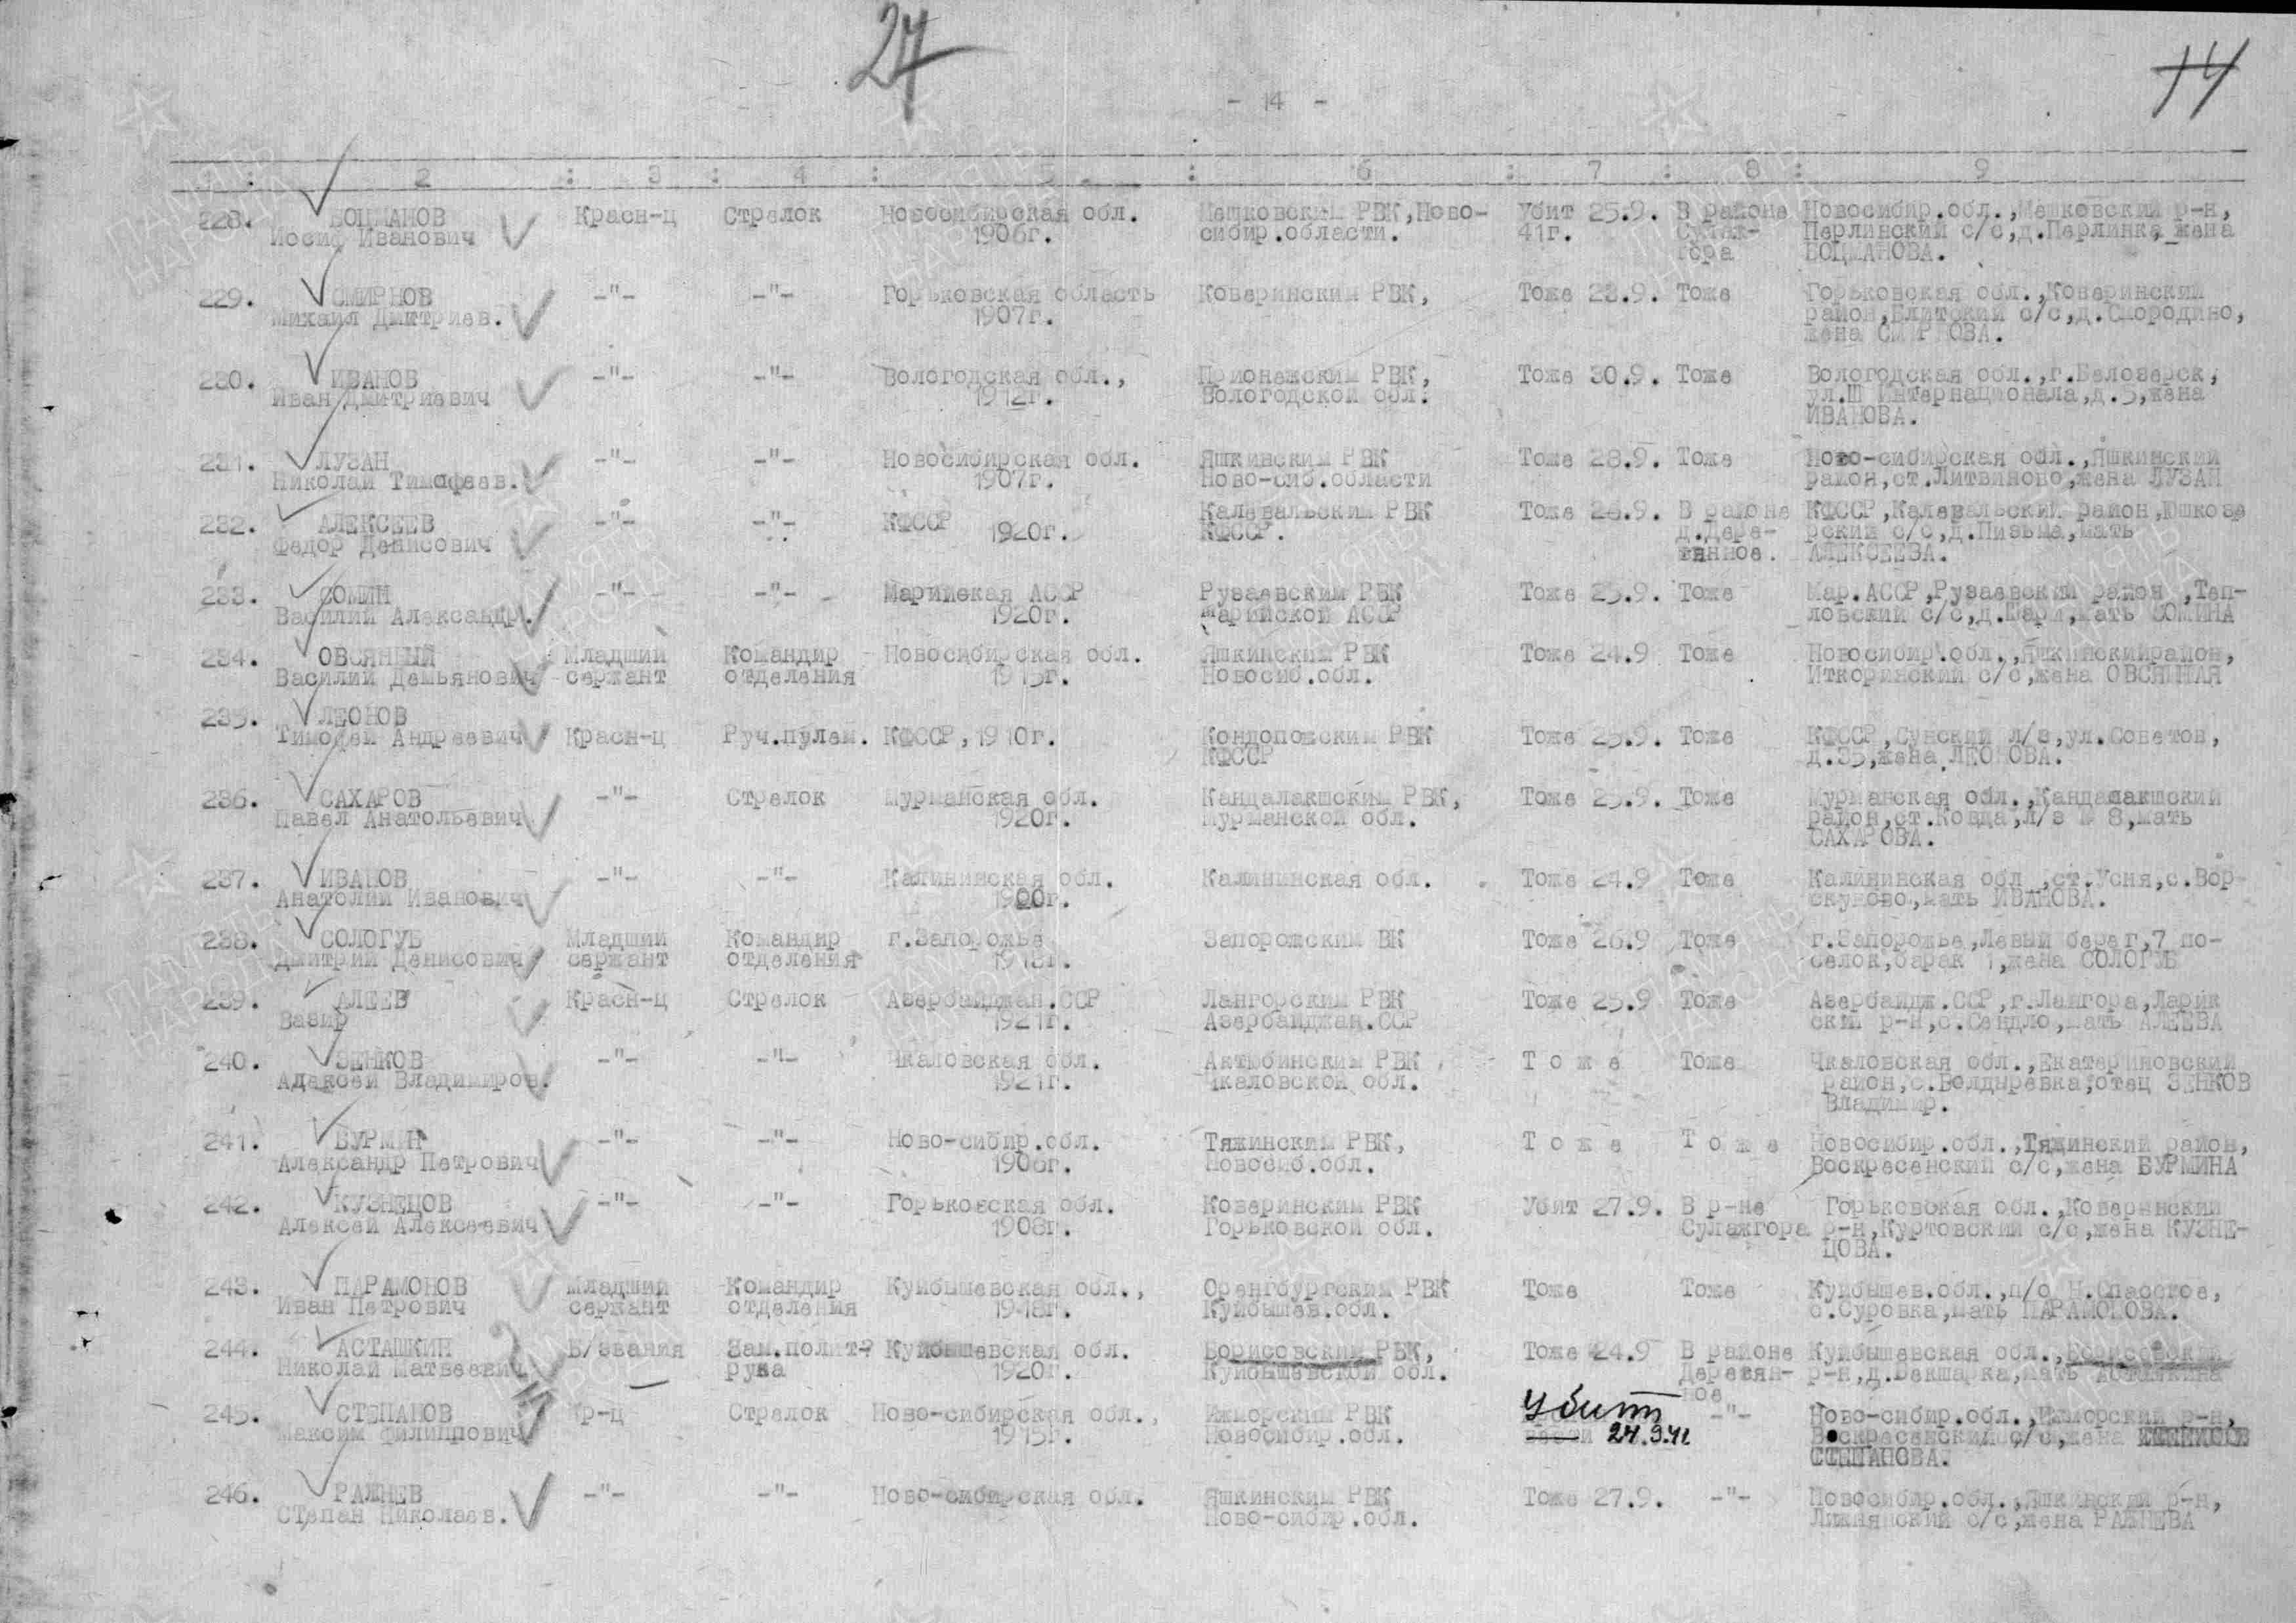 27
- 14 -
14
2 : 3 : 4 : : 6 : 7 : 8 : 9
228. БОЦМАНОВ Красн-ц Стрелок Новосибирская обл. Мешковским РВК,Ново- Убит 25.9. В районе Новосибир.обл.,Мешковский р-н,
Иосиф Иванович 1906г. сибир.области. 41г. Сулаж- Перлинский с/с,д.Перлинка,жена
гора БОЦМАНОВА.
229. СМИРНОВ -"- -"- Горьковская область Коверинским РВК, Тоже 28.9. Тоже Горьковская обл.,Коверинский
Михаил Дмитриев. 1907г. район, с/с,д.Смородино,
жена СМИРНОВА.
230. ИВАНОВ -"- -"- Вологодская обл., Прионежским РВК, Тоже 30.9. Тоже Вологодская обл.,г.Белозерск,
Иван Дмитриевич 1912г. Вологодской обл. ул.Ш Интернационала,д.5,жена
ИВАНОВА.
231. ЛУЗАН -"- -"- Новосибирская обл. Яшкинским РВК Тоже 28.9. Тоже Ново-сибирская обл.,Яшкинский
Николай Тимофеев. 1907г. Ново-сиб.области район,ст.Литвиново,жена ЛУЗАН
232. АЛЕКСЕЕВ -"- -"- КФССР 1920г. Калевальским РВК Тоже 26.9. В районе КФССР,Калевальский район,Юшкозе
Федор Денисович КФССР. д.Дере- рский с/с,д.Пизьма,мать
вянное. АЛЕКСЕЕВА.
233. СОМИН -"- -"- Марийская АССР Рузаевским РВК Тоже 25.9. Тоже Мар.АССР,Рузаевский район,Теп-
Василий Александр. 1920г. Марийской АССР ловский с/с,д.Шары,мать СОМИНА
234. ОВСЯННЫЙ Младший Командир Новосибирская обл. Яшкинским РВК Тоже 24.9 Тоже Новосибир.обл.,Яшкинскийрайон,
Василий Демьянович сержант отделения 1915г. Новосиб.обл. Иткоринский с/с,жена ОВСЯННАЯ
235. ЛЕОНОВ
Тимофей Андреевич Красн-ц Руч.пулем. КФССР,1910г. Кондопожским РВК Тоже 25.9. Тоже КФССР,Сунский л/з,ул.Советов,
КФССР д.35,жена ЛЕОНОВА.
236. САХАРОВ -"- Стрелок Мурманская обл. Кандалакшским РВК, Тоже 25.9. Тоже Мурманская обл.,Кандалакшский
Павел Анатольевич 1920г. Мурманской обл. район,ст.Ковда,л/з № 8,мать
САХАРОВА.
237. ИВАНОВ -"- -"- Калининская обл. Калининская обл. Тоже 24.9 Тоже Калининская обл.,ст.Усня,с.Вор-
Анатолий Иванович скуново,мать ИВАНОВА.
238. СОЛОГУБ Младший Командир г.Запорожье Запорожским ВК Тоже 26.9 Тоже г.Запорожье,Левый берег,7 по-
Дмитрий Денисович сержант отделения 1918г. селок,барак 1,жена СОЛОГУБ
239. АЛЕЕВ Красн-ц Стрелок Азербайджан.ССР Лангорским РВК Тоже 25.9 Тоже Азербайдж.ССР,г.Лангора,Ларик
Вазир 1921г. Азербайджан.ССР ский р-н,с.Сендло,мать АЛЕЕВА
240. ЗЕНКОВ -"- -"- Чкаловская обл. Актюбинским РВК Т о ж е Тоже Чкаловская обл.,Екатериновский
Алексей Владимиров. 1921г. Чкаловской обл. район,с.Болдыревка,отец ЗЕНКОВ
Владимир.
241. БУРМИН -"- -"- Ново-сибир.обл. Тяжинским РВК, Т о ж е Т о ж е Новосибир.обл.,Тяжинский район,
Александр Петрович 1908г. Новосиб.обл. Воскресенский с/с,жена БУРМИНА
242. КУЗНЕЦОВ -"- -"- Горьковская обл. Коверинским РВК Убит 27.9. В р-не Горьковская обл.,Коверинский
Алексей Алексеевич 1908г. Горьковской обл. Сулажгора р-н,Куртовский с/с,жена КУЗНЕ-
ЦОВА.
243. ПАРАМОНОВ Младший Командир Куйбышевская обл., Оренгбургским РВК Тоже Тоже Куйбышев.обл.,п/о Н.Спасское,
Иван Петрович сержант отделения 1918г. Куйбышев.обл. с.Суровка,мать ПАРАМОНОВА.
244. АСТАШКИН Б/звания Зам.полит- Куйбышевская обл. Борисовским РВК, Тоже 24.9 В районе Куйбышевская обл.,Борисовский
Николай Матвеевич рука 1920г. Куйбышевской обл. Деревян- р-н,д.Бекшарка,мать Асташкина
ное
245. СТЕПАНОВ кр-ц Стрелок Ново-сибирская обл., Ижморским РВК Убит -"- Ново-сибир.обл.,Ижморский р-н,
Максим Филиппович 1915г. Новосибир.обл. 24.9.41 Воскресенский с/с,жена
СТЕПАНОВА.
246. РАЖНЕВ -"- -"- Ново-сибирская обл. Яшкинским РВК Тоже 27.9. -"- Новосибир.обл.,Яшкинский р-н,
СТепан Николаев. Ново-сибир.обл. с/с,жена РАЖНЕВА